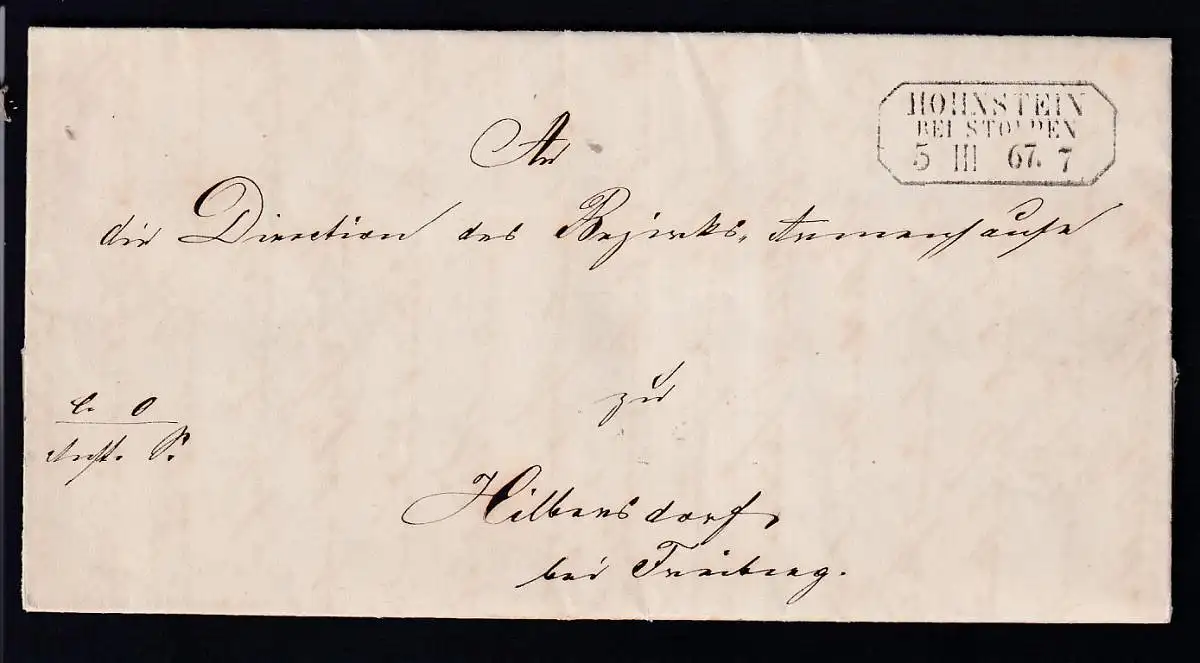 HOHNSTEIN
BEI STOLPEN
5 III 67. 7
An
die Direction des Bezirks-Armenhauses
zu
Hilbersdorf
bei Freiberg.